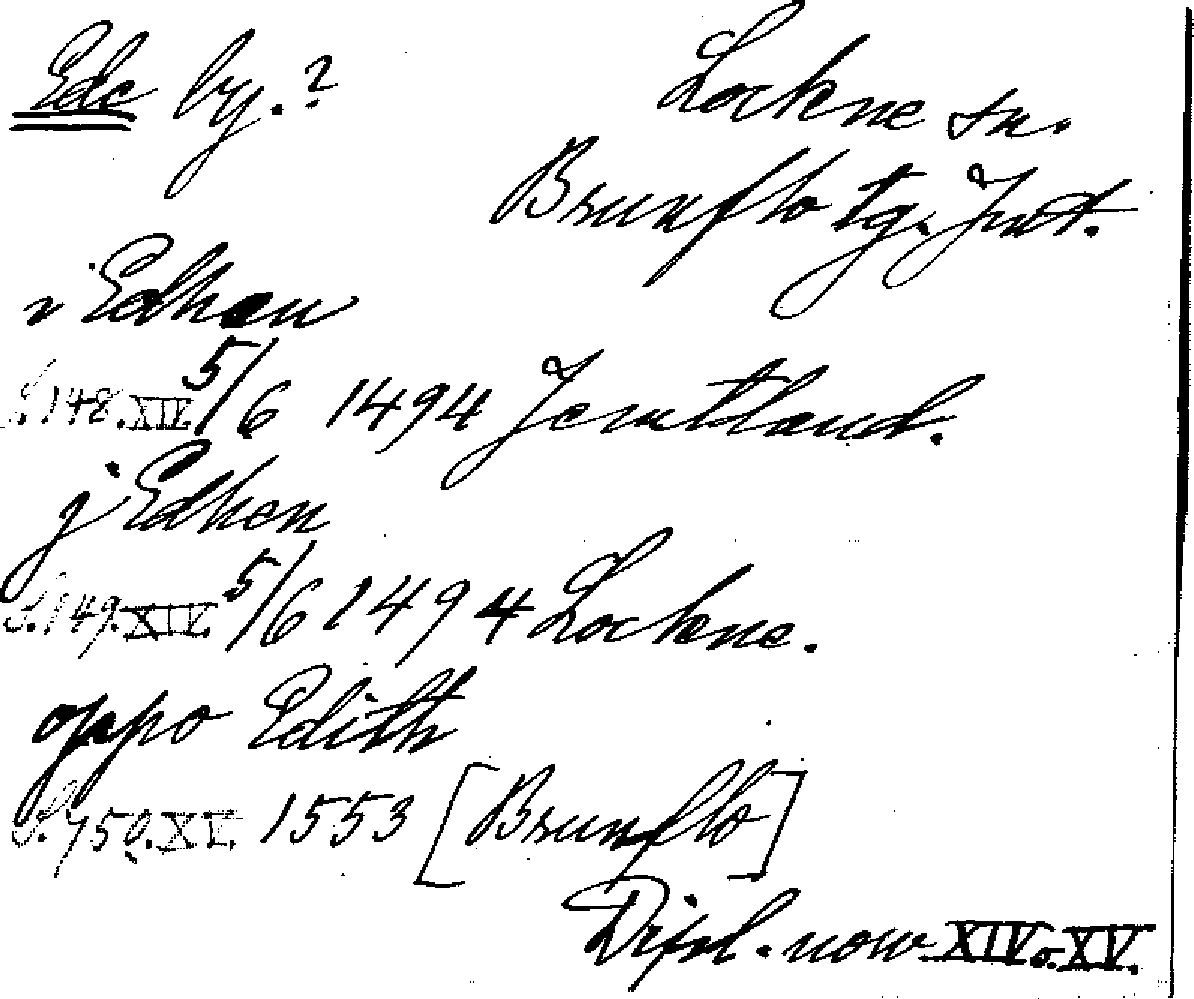 Ede by.?
Lockne sn.
Brunflo tg. Jmt.
i Edhen
S. 148. XIV. 5/6 1494 Jemtland.
j Edhen
S. 149. XIV. 5/6 1494 Lockne.
oppo Edith
S. 750. XV. 1553 [Brunflo]
Dipl. norv. XIV o. XV.